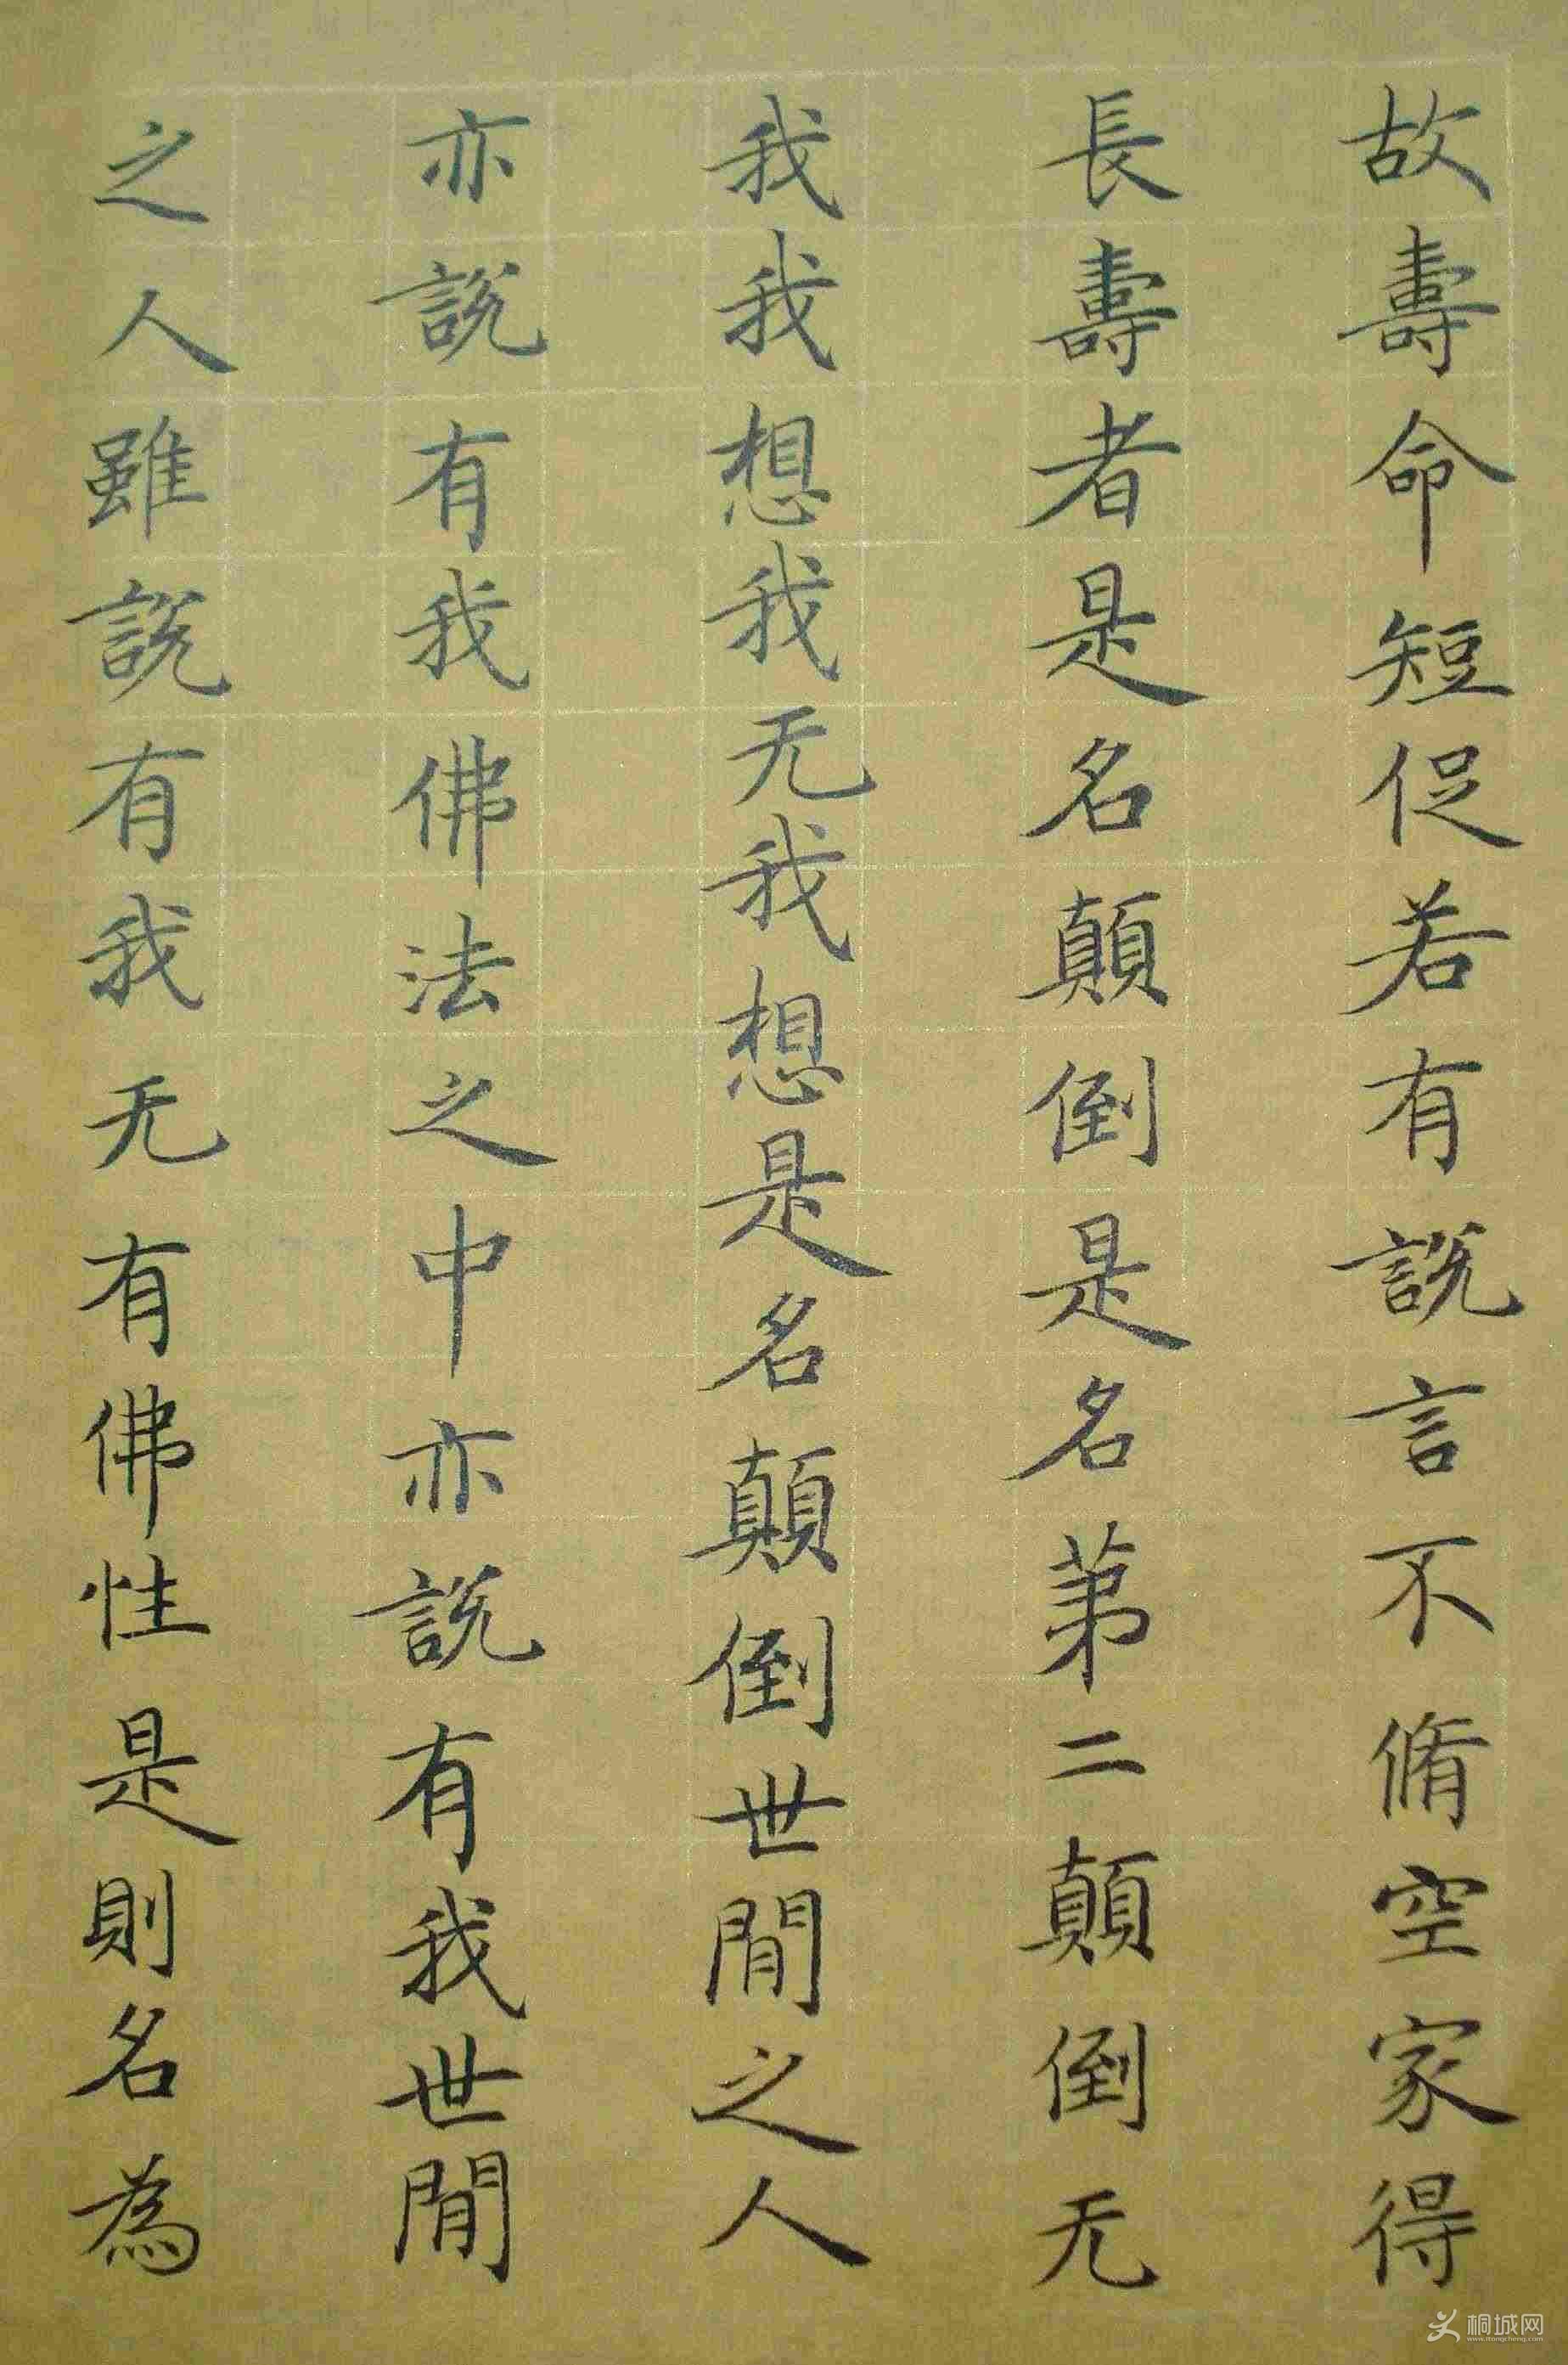 故壽命短促若有説言不脩空家得
長壽者是名顛倒是名苐二顛倒无
我我想我无我想是名顛倒世間之人
亦説有我佛法之中亦説有我世間
之人雖説有我无有佛性是則名為
桐城网
www.itongcheng.com